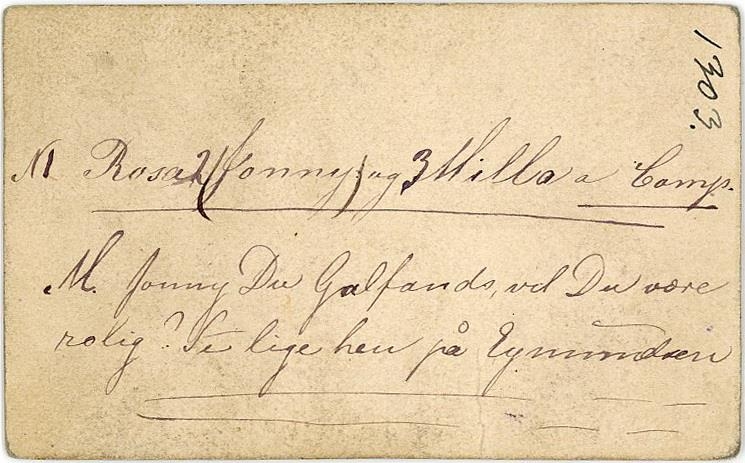 1303.
N1 Rosa 2 (Jonny) og 3 Milla a Comp.
M. Jonny Du Galfands, vil Du være
rolig? Se lige hen på Eymundsen